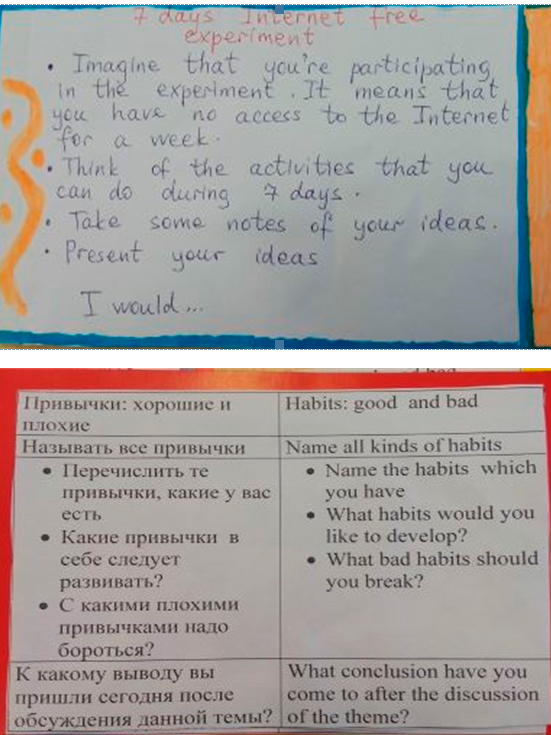 7 days Internet free
experiment
• Imagine that you're participating
in the experiment. It means that
you have no access to the Internet
for a week.
• Think of the activities that you
can do during 7 days.
• Take some notes of your ideas.
• Present your ideas
I would...
Привычки: хорошие и
плохие
Habits: good and bad
Называть все привычки
Name all kinds of habits
• Перечислить те
привычки, какие у вас
есть
• Какие привычки в
себе следует
развивать?
• С какими плохими
привычками надо
бороться?
• Name the habits which
you have
• What habits would you
like to develop?
• What bad habits should
you break?
К какому выводу вы
пришли сегодня после
обсуждения данной темы?
What conclusion have you
come to after the discussion
of the theme?